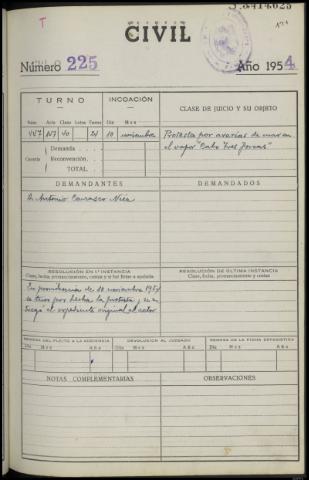 T
CIVIL
Número 225
Año 1954
TURNO
INCOACIÓN
CLASE DE JUICIO Y SU OBJETO
Núm. Acto Clase Letra Turno Día Mes
10 noviembre
Protesta por averías de mar en
el vapor "Cabo Tres Forcas"
Demanda
Cuantía Reconvención
TOTAL
DEMANDANTES
DEMANDADOS
D. Antonio Carrasco
RESOLUCIÓN EN 1ª INSTANCIA
RESOLUCIÓN DE ÚLTIMA INSTANCIA
Clase, fecha, pronunciamiento, costas y si fué firme o apelada
Clase, fecha, pronunciamiento, costas
En providencia de 10 noviembre 1954
se tuvo por hecha la protesta, y se
el expediente original al actor
REMESA DEL PLEITO A LA AUDIENCIA
DEVOLUCIÓN AL JUZGADO
REMESA DE LA FICHA ESTADÍSTICA
Día Mes Año
Día Mes Año
Día Mes Año
NOTAS COMPLEMENTARIAS
OBSERVACIONES